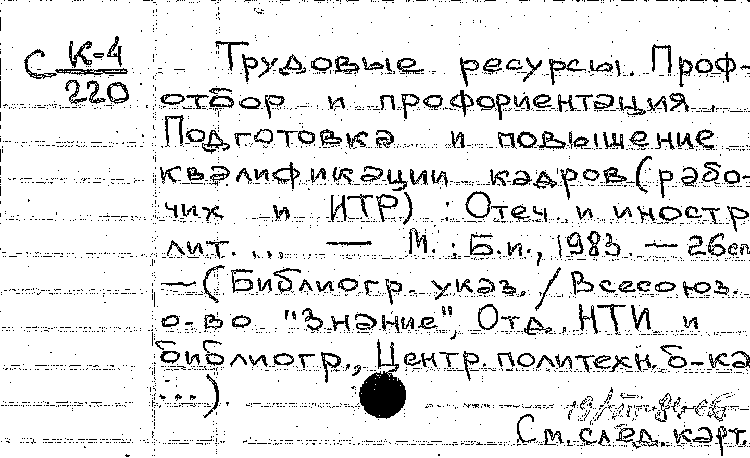 С К-4
220
Трудовые ресурсы. Проф-
отбор и профориентация.
Подготовка и повышение
квалификации кадров (рабо-
чих и ИТР) : Отеч. и иностр.
лит. ... — М. : Б.и., 1983. — 26 сп
— (Библиогр. указ. / Всесоюз.
о-во "Знание", Отд. НТИ и
библиогр., Центр. политехн. б-ка
...).
См. след. карт.